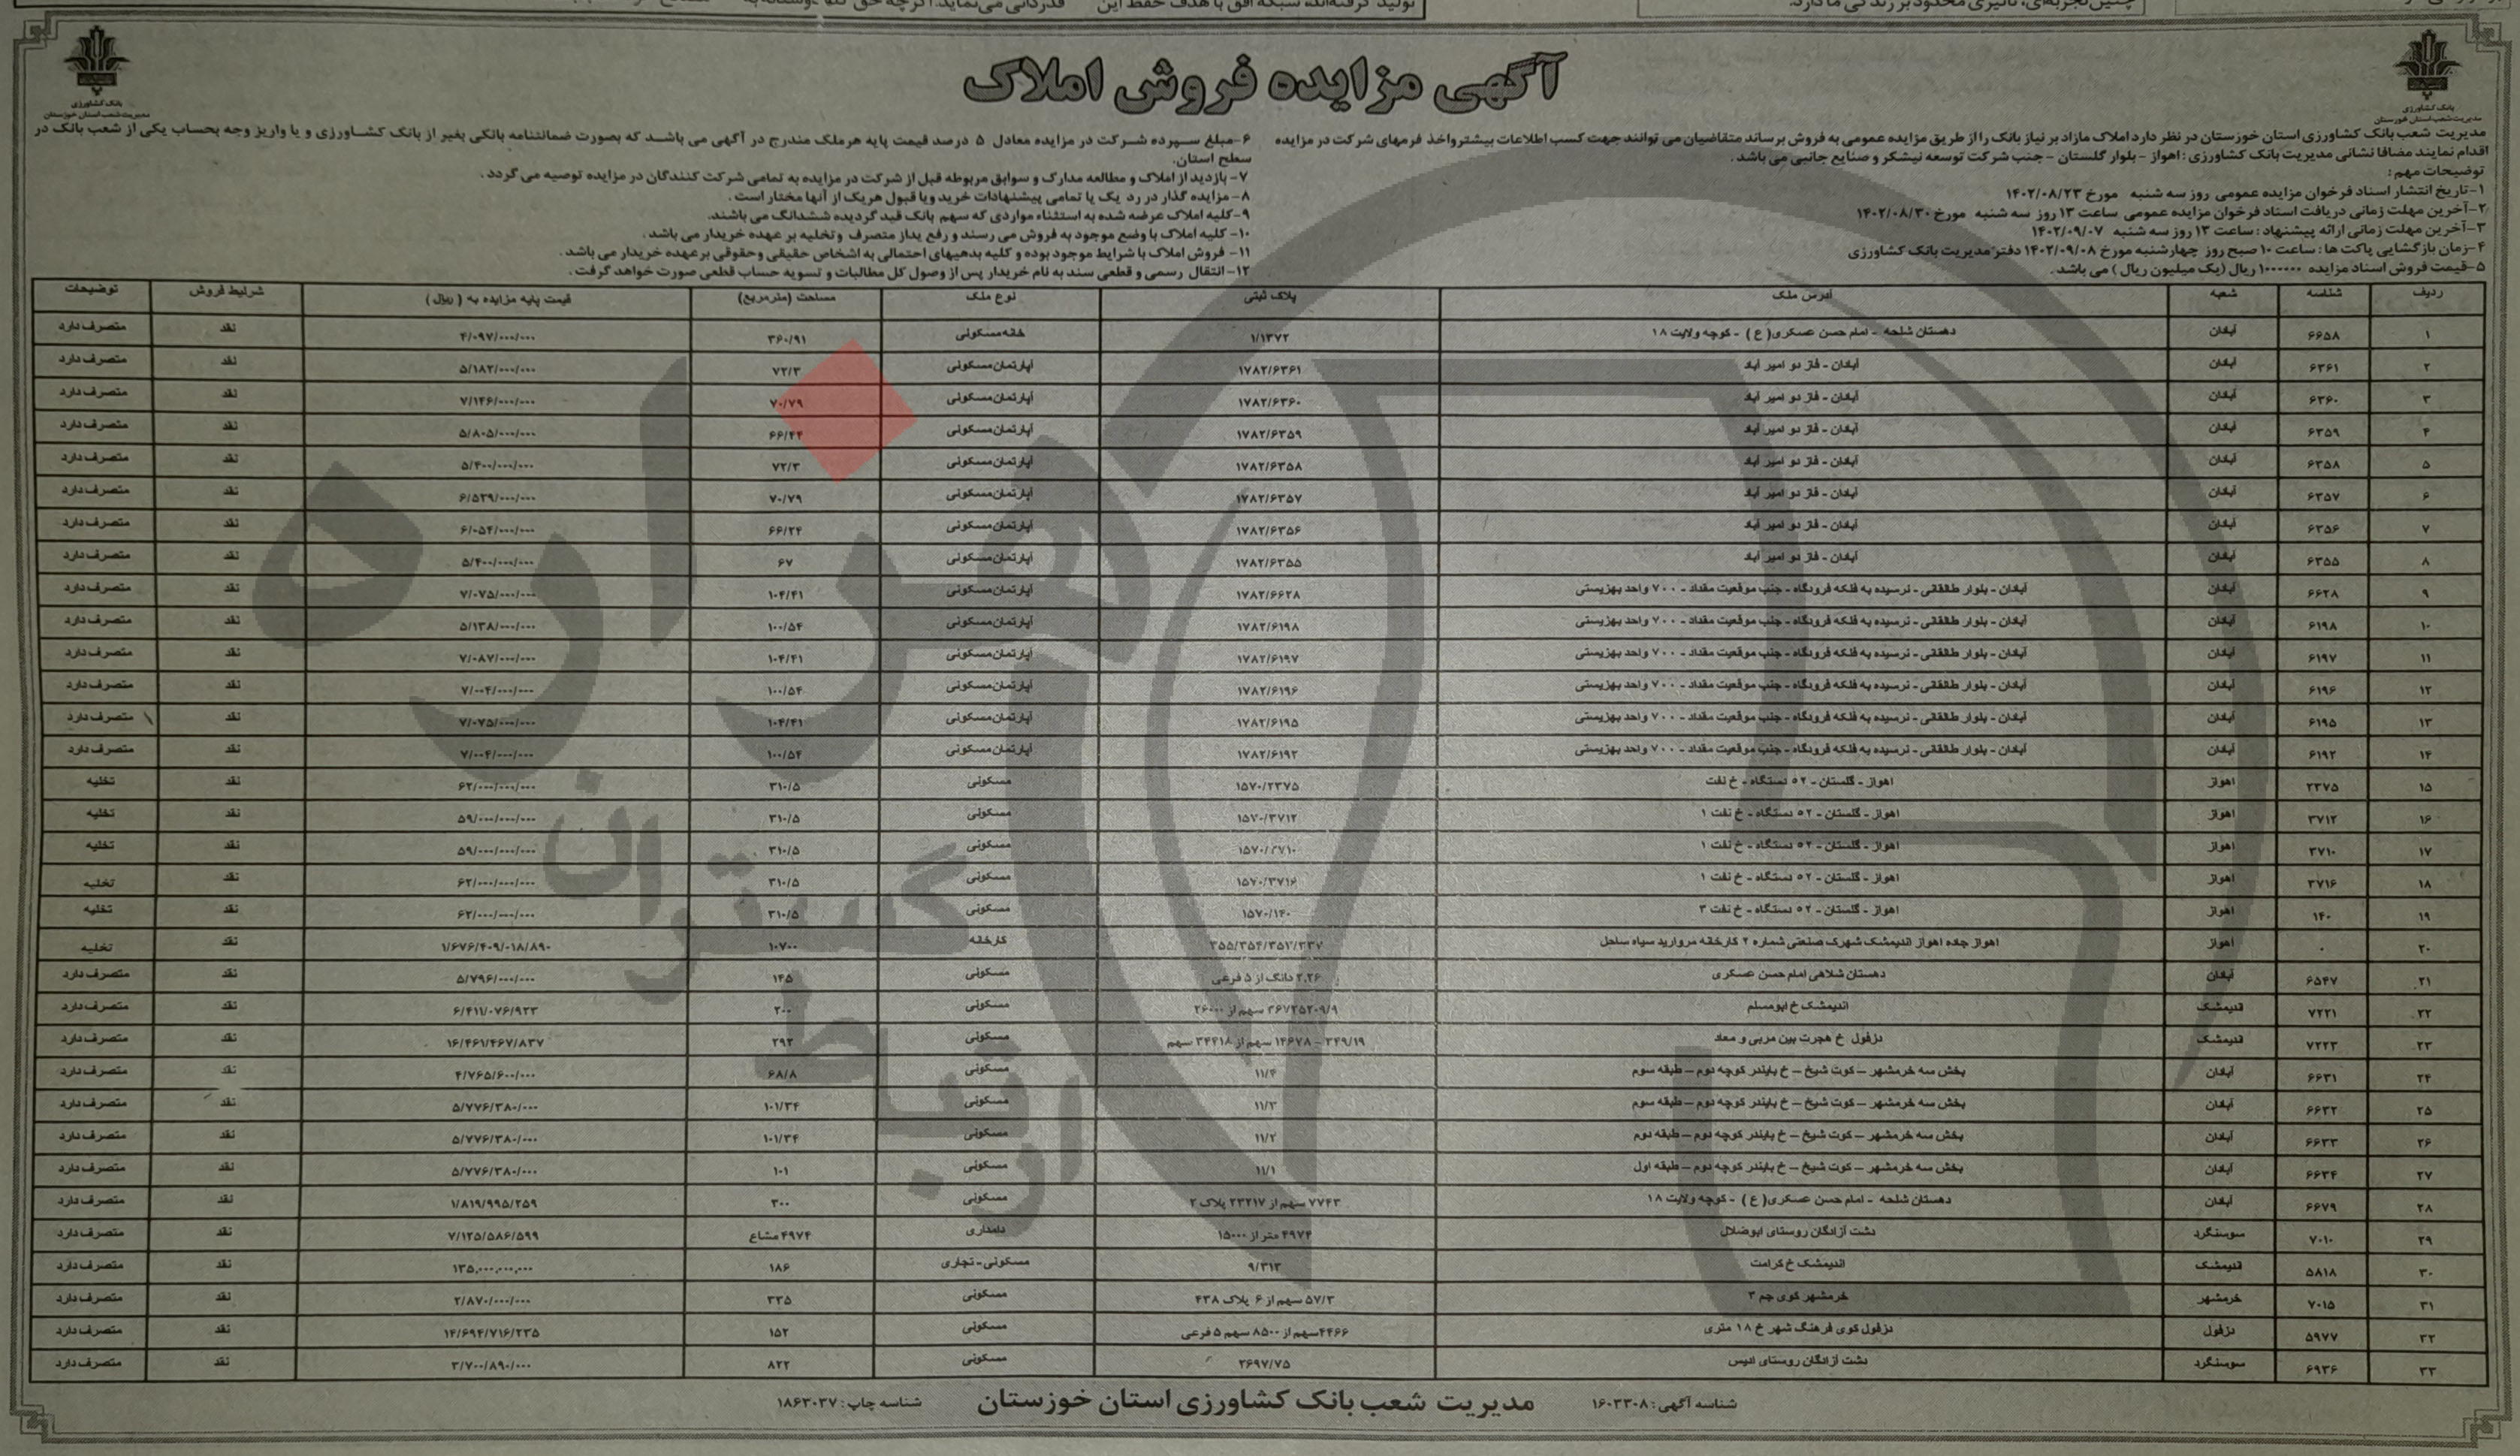 آگهی مزایده فروش املاک
بانک کشاورزی
مدیریت شعب استان خوزستان
بانک کشاورزی
مدیریت شعب استان خوزستان
مدیریت شعب بانک کشاورزی استان خوزستان در نظر دارد املاک مازاد بر نیاز بانک را از طریق مزایده عمومی به فروش برساند متقاضیان می توانند جهت کسب اطلاعات بیشتر واخذ فرمهای شرکت در مزایده
اقدام نمایند مضافا نشانی مدیریت بانک کشاورزی : اهواز - بلوار گلستان - جنب شرکت توسعه نیشکر و صنایع جانبی می باشد .
توضیحات مهم :
۱-تاریخ انتشار اسناد فرخوان مزایده عمومی روز سه شنبه مورخ ۱۴۰۲/۰۸/۲۳
۲-آخرین مهلت زمانی دریافت اسناد فرخوان مزایده عمومی ساعت ۱۳ روز سه شنبه مورخ ۱۴۰۲/۰۸/۳۰
۳-آخرین مهلت زمانی ارائه پیشنهاد : ساعت ۱۳ روز سه شنبه ۱۴۰۲/۰۹/۰۷
۴-زمان بازگشایی پاکت ها : ساعت ۱۰ صبح روز چهارشنبه مورخ ۱۴۰۲/۰۹/۰۸ دفتر مدیریت بانک کشاورزی
۵-قیمت فروش اسناد مزایده ۱۰۰۰۰۰۰ ریال (یک میلیون ریال ) می باشد .
۶-مبلغ سپرده شرکت در مزایده معادل ۵ درصد قیمت پایه هر ملک مندرج در آگهی می باشد که بصورت ضمانتنامه بانکی بغیر از بانک کشاورزی و یا واریز وجه بحساب یکی از شعب بانک در
سطح استان.
۷- بازدید از املاک و مطالعه مدارک و سوابق مربوطه قبل از شرکت در مزایده به تمامی شرکت کنندگان در مزایده توصیه می گردد .
۸- مزایده گذار در رد یک یا تمامی پیشنهادات خرید ویا قبول هریک از آنها مختار است .
۹-کلیه املاک عرضه شده به استثناء مواردی که سهم بانک قید گردیده ششدانگ می باشند.
۱۰- کلیه املاک با وضع موجود به فروش می رسند و رفع یداز متصرف وتخلیه بر عهده خریدار می باشد .
۱۱- فروش املاک با شرایط موجود بوده و کلیه بدهیهای احتمالی به اشخاص حقیقی وحقوقی بر عهده خریدار می باشد .
۱۲-انتقال رسمی و قطعی سند به نام خریدار پس از وصول کل مطالبات و تسویه حساب قطعی صورت خواهد گرفت .
ردیف شناسه شعبه آدرس ملک پلاک ثبتی نوع ملک مساحت (مترمربع) قیمت پایه مزایده به ( ریال) شرایط فروش توضیحات
۱ ۶۶۵۸ آبادان دهستان شلحه - امام حسن عسکری( ع ) - کوچه ولایت ۱۸ ۱/۱۳۷۲ خانه مسکونی ۳۶۰/۹۱ ۴/۰۹۷/۰۰۰/۰۰۰ نقد متصرف دارد
۲ ۶۳۶۱ آبادان آبادان - فاز دو امیر آباد ۱۷۸۲/۶۳۶۱ آپارتمان مسکونی ۷۲/۳ ۵/۱۸۲/۰۰۰/۰۰۰ نقد متصرف دارد
۳ ۶۳۶۰ آبادان آبادان - فاز دو امیر آباد ۱۷۸۲/۶۳۶۰ آپارتمان مسکونی ۷۰/۷۹ ۷/۱۴۶/۰۰۰/۰۰۰ نقد متصرف دارد
۴ ۶۳۵۹ آبادان آبادان - فاز دو امیر آباد ۱۷۸۲/۶۳۵۹ آپارتمان مسکونی ۶۶/۲۴ ۵/۸۰۵/۰۰۰/۰۰۰ نقد متصرف دارد
۵ ۶۳۵۸ آبادان آبادان - فاز دو امیر آباد ۱۷۸۲/۶۳۵۸ آپارتمان مسکونی ۷۲/۳ ۵/۴۰۰/۰۰۰/۰۰۰ نقد متصرف دارد
۶ ۶۳۵۷ آبادان آبادان - فاز دو امیر آباد ۱۷۸۲/۶۳۵۷ آپارتمان مسکونی ۷۰/۷۹ ۶/۵۲۹/۰۰۰/۰۰۰ نقد متصرف دارد
۷ ۶۳۵۶ آبادان آبادان - فاز دو امیر آباد ۱۷۸۲/۶۳۵۶ آپارتمان مسکونی ۶۶/۲۴ ۶/۰۵۴/۰۰۰/۰۰۰ نقد متصرف دارد
۸ ۶۳۵۵ آبادان آبادان - فاز دو امیر آباد ۱۷۸۲/۶۳۵۵ آپارتمان مسکونی ۶۷ ۵/۴۰۰/۰۰۰/۰۰۰ نقد متصرف دارد
۹ ۶۶۲۸ آبادان آبادان - بلوار طالقانی - نرسیده به فلکه فرودگاه - جنب موقعیت مقداد - ۷۰۰ واحد بهزیستی ۱۷۸۲/۶۶۲۸ آپارتمان مسکونی ۱۰۴/۴۱ ۷/۰۷۵/۰۰۰/۰۰۰ نقد متصرف دارد
۱۰ ۶۱۹۸ آبادان آبادان - بلوار طالقانی - نرسیده به فلکه فرودگاه - جنب موقعیت مقداد - ۷۰۰ واحد بهزیستی ۱۷۸۲/۶۱۹۸ آپارتمان مسکونی ۱۰۰/۵۴ ۵/۱۳۸/۰۰۰/۰۰۰ نقد متصرف دارد
۱۱ ۶۱۹۷ آبادان آبادان - بلوار طالقانی - نرسیده به فلکه فرودگاه - جنب موقعیت مقداد - ۷۰۰ واحد بهزیستی ۱۷۸۲/۶۱۹۷ آپارتمان مسکونی ۱۰۴/۴۱ ۷/۰۸۷/۰۰۰/۰۰۰ نقد متصرف دارد
۱۲ ۶۱۹۶ آبادان آبادان - بلوار طالقانی - نرسیده به فلکه فرودگاه - جنب موقعیت مقداد - ۷۰۰ واحد بهزیستی ۱۷۸۲/۶۱۹۶ آپارتمان مسکونی ۱۰۰/۵۴ ۷/۰۰۴/۰۰۰/۰۰۰ نقد متصرف دارد
۱۳ ۶۱۹۵ آبادان آبادان - بلوار طالقانی - نرسیده به فلکه فرودگاه - جنب موقعیت مقداد - ۷۰۰ واحد بهزیستی ۱۷۸۲/۶۱۹۵ آپارتمان مسکونی ۱۰۴/۴۱ ۷/۰۷۵/۰۰۰/۰۰۰ نقد متصرف دارد
۱۴ ۶۱۹۲ آبادان آبادان - بلوار طالقانی - نرسیده به فلکه فرودگاه - جنب موقعیت مقداد - ۷۰۰ واحد بهزیستی ۱۷۸۲/۶۱۹۲ آپارتمان مسکونی ۱۰۰/۵۴ ۷/۰۰۴/۰۰۰/۰۰۰ نقد متصرف دارد
۱۵ ۲۳۷۵ اهواز اهواز - گلستان - ۵۲ دستگاه - خ نفت ۱۵۷۰/۲۳۷۵ مسکونی ۳۱۰/۵ ۶۲/۰۰۰/۰۰۰/۰۰۰ نقد تخلیه
۱۶ ۳۷۱۲ اهواز اهواز - گلستان - ۵۲ دستگاه - خ نفت ۱ ۱۵۷۰/۳۷۱۲ مسکونی ۳۱۰/۵ ۵۹/۰۰۰/۰۰۰/۰۰۰ نقد تخلیه
۱۷ ۳۷۱۰ اهواز اهواز - گلستان - ۵۲ دستگاه - خ نفت ۱ ۱۵۷۰/۳۷۱۰ مسکونی ۳۱۰/۵ ۵۹/۰۰۰/۰۰۰/۰۰۰ نقد تخلیه
۱۸ ۳۷۱۶ اهواز اهواز - گلستان - ۵۲ دستگاه - خ نفت ۱ ۱۵۷۰/۳۷۱۶ مسکونی ۳۱۰/۵ ۶۲/۰۰۰/۰۰۰/۰۰۰ نقد تخلیه
۱۹ ۱۴۰ اهواز اهواز - گلستان - ۵۲ دستگاه - خ نفت ۳ ۱۵۷۰/۱۴۰ مسکونی ۳۱۰/۵ ۶۲/۰۰۰/۰۰۰/۰۰۰ نقد تخلیه
۲۰ ۰ اهواز اهواز جاده اهواز اندیمشک شهرک صنعتی شماره ۲ کارخانه مروارید سیاه ساحل ۳۵۵/۳۵۴/۳۵۲/۳۳۷ کارخانه ۱۰۷۰۰ ۱/۶۷۶/۴۰۹/۰۱۸/۸۹۰ نقد تخلیه
۲۱ ۶۵۴۷ آبادان دهستان شلاهی امام حسن عسکری ۲.۲۶ دانگ از ۵ فرعی مسکونی ۱۴۵ ۵/۷۹۶/۰۰۰/۰۰۰ نقد متصرف دارد
۲۲ ۷۲۲۱ اندیمشک اندیمشک خ ابومسلم سهم از ۲۶۰۰۰ مسکونی ۲۰۰ ۶/۴۱۱/۰۷۶/۹۲۳ نقد متصرف دارد
۲۳ ۷۲۲۳ اندیمشک دزفول خ هجرت بین مربی و معاد ۳۴۹/۱۹ - ۱۴۶۷۸ سهم از ۳۴۴۱۸ سهم مسکونی ۲۹۲ ۱۶/۴۶۱/۴۶۷/۸۳۷ نقد متصرف دارد
۲۴ ۶۶۳۱ آبادان بخش سه خرمشهر – کوت شیخ – خ بایندر کوچه دوم – طبقه سوم ۱۱/۴ مسکونی ۶۸/۸ ۴/۷۶۵/۶۰۰/۰۰۰ نقد متصرف دارد
۲۵ ۶۶۳۲ آبادان بخش سه خرمشهر – کوت شیخ – خ بایندر کوچه دوم – طبقه سوم ۱۱/۳ مسکونی ۱۰۱/۳۴ ۵/۷۷۶/۳۸۰/۰۰۰ نقد متصرف دارد
۲۶ ۶۶۳۳ آبادان بخش سه خرمشهر – کوت شیخ – خ بایندر کوچه دوم – طبقه دوم ۱۱/۲ مسکونی ۱۰۱/۳۴ ۵/۷۷۶/۳۸۰/۰۰۰ نقد متصرف دارد
۲۷ ۶۶۳۴ آبادان بخش سه خرمشهر – کوت شیخ – خ بایندر کوچه دوم – طبقه اول ۱۱/۱ مسکونی ۱۰۱ ۵/۷۷۶/۳۸۰/۰۰۰ نقد متصرف دارد
۲۸ ۶۶۷۹ آبادان دهستان شلحه - امام حسن عسکری( ع ) - کوچه ولایت ۱۸ ۷۷۴۳ سهم از ۲۳۲۱۷ پلاک ۲ مسکونی ۳۰۰ ۱/۸۱۹/۹۹۵/۲۵۹ نقد متصرف دارد
۲۹ ۷۰۱۰ سوسنگرد دشت آزادگان روستای ابوضلال ۴۹۷۴ متر از ۱۵۰۰۰ دامداری ۴۹۷۴ مشاع ۷/۱۲۵/۵۸۶/۵۹۹ نقد متصرف دارد
۳۰ ۵۸۱۸ اندیمشک اندیمشک خ کرامت ۹/۳۱۳ مسکونی - تجاری ۱۸۶ ۱۳۵,۰۰۰,۰۰۰,۰۰۰ نقد متصرف دارد
۳۱ ۷۰۱۵ خرمشهر خرمشهر کوی جم ۳ ۵۷/۳ سهم از ۶ پلاک ۴۳۸ مسکونی ۳۳۵ ۲/۸۷۰/۰۰۰/۰۰۰ نقد متصرف دارد
۳۲ ۵۹۷۷ دزفول دزفول کوی فرهنگ شهر خ ۱۸ متری ۴۴۶۶سهم از ۸۵۰۰ سهم ۵ فرعی مسکونی ۱۵۲ ۱۴/۶۹۴/۷۱۶/۲۳۵ نقد متصرف دارد
۳۳ ۶۹۳۶ سوسنگرد دشت آزادگان روستای ادیس ۲۶۹۷/۷۵ مسکونی ۸۲۲ ۳/۷۰۰/۸۹۰/۰۰۰ نقد متصرف دارد
شناسه آگهی : ۱۶۰۳۳۰۸ مدیریت شعب بانک کشاورزی استان خوزستان شناسه چاپ : ۱۸۶۳۰۳۷
هزاره
گستران
ارتباط